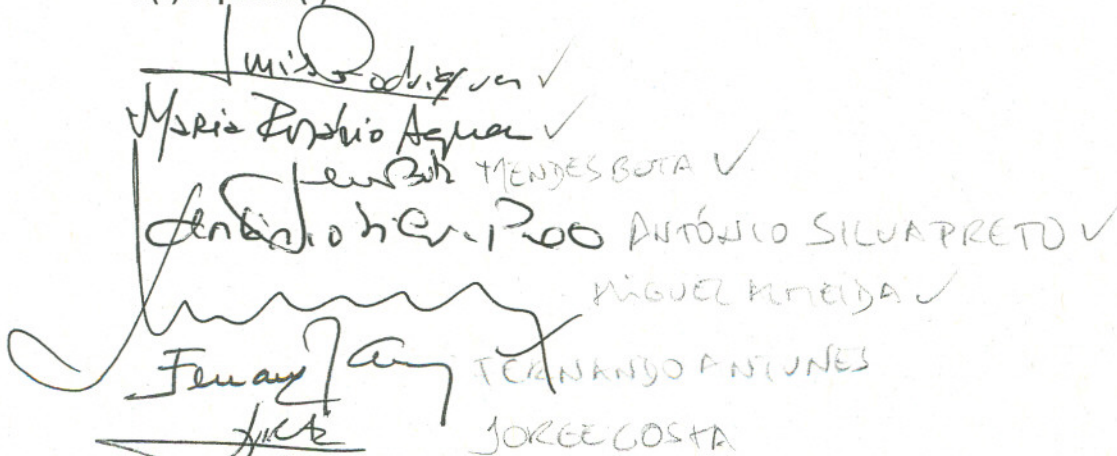 Luis Rodrigues ✓
Maria Rosário Águas ✓
MENDES BOTA ✓
António Silva Preto ANTÓNIO SILVA PRETO ✓
MIGUEL ALMEIDA ✓
FERNANDO ANTUNES
JORGE COSTA